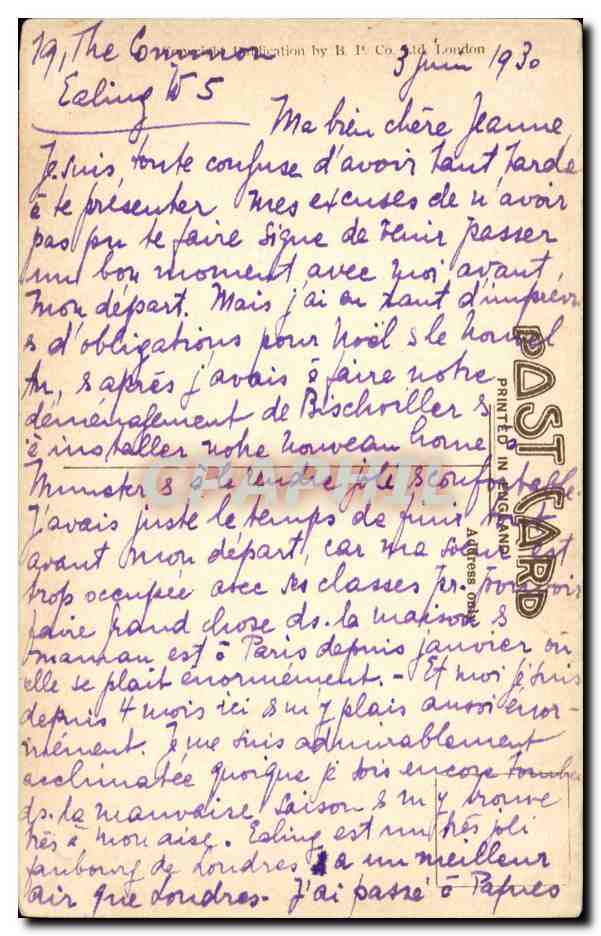 19, The Common
Copyright Publication by B. P. Co. Ltd. London
3 juin 1930
Ealing W 5
Ma bien chère Jeanne,
Je suis toute confuse d'avoir tant tardé
à te présenter mes excuses de n'avoir
pas pu te faire signe de venir passer
un bon moment avec moi avant
mon départ. Mais j'ai eu tant d'imprévu
& d'obligations pour Noël & le Nouvel
An, & après j'avais à faire notre
déménagement de Bischviller &
à installer notre nouveau home à
Munster & à le rendre joli & confortable.
J'avais juste le temps de finir tout
avant mon départ, car ma soeur est
trop occupée avec ses classes pr. pouvoir
faire grand chose ds. la maison &
maman est à Paris depuis janvier où
elle se plait énormément. - Et moi je suis
depuis 4 mois ici & m'y plais aussi énor-
mément. Je me suis admirablement
acclimatée quoique je sois encore tombée
ds. la mauvaise saison & m'y trouve
très à mon aise. Ealing est un très joli
faubourg de Londres & a un meilleur
air que Londres. J'ai passé à Pâques
POST CARD
PRINTED IN ENGLAND
Address only
CPAPHIL